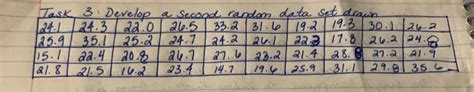 Task 3: Develop a second random data set drawn
24.1 24.3 22.0 26.5 33.2 31.6 19.2 19.3 30.1 26.2
25.9 35.1 25.2 24.7 24.2 26.1 22.3 17.8 26.2 24.
15.1 22.4 20.8 26.7 27.6 23.2 21.4 28.8 27.2 21.9
21.8 21.5 16.2 23.4 14.7 19.6 25.9 31.1 29.8 35.6